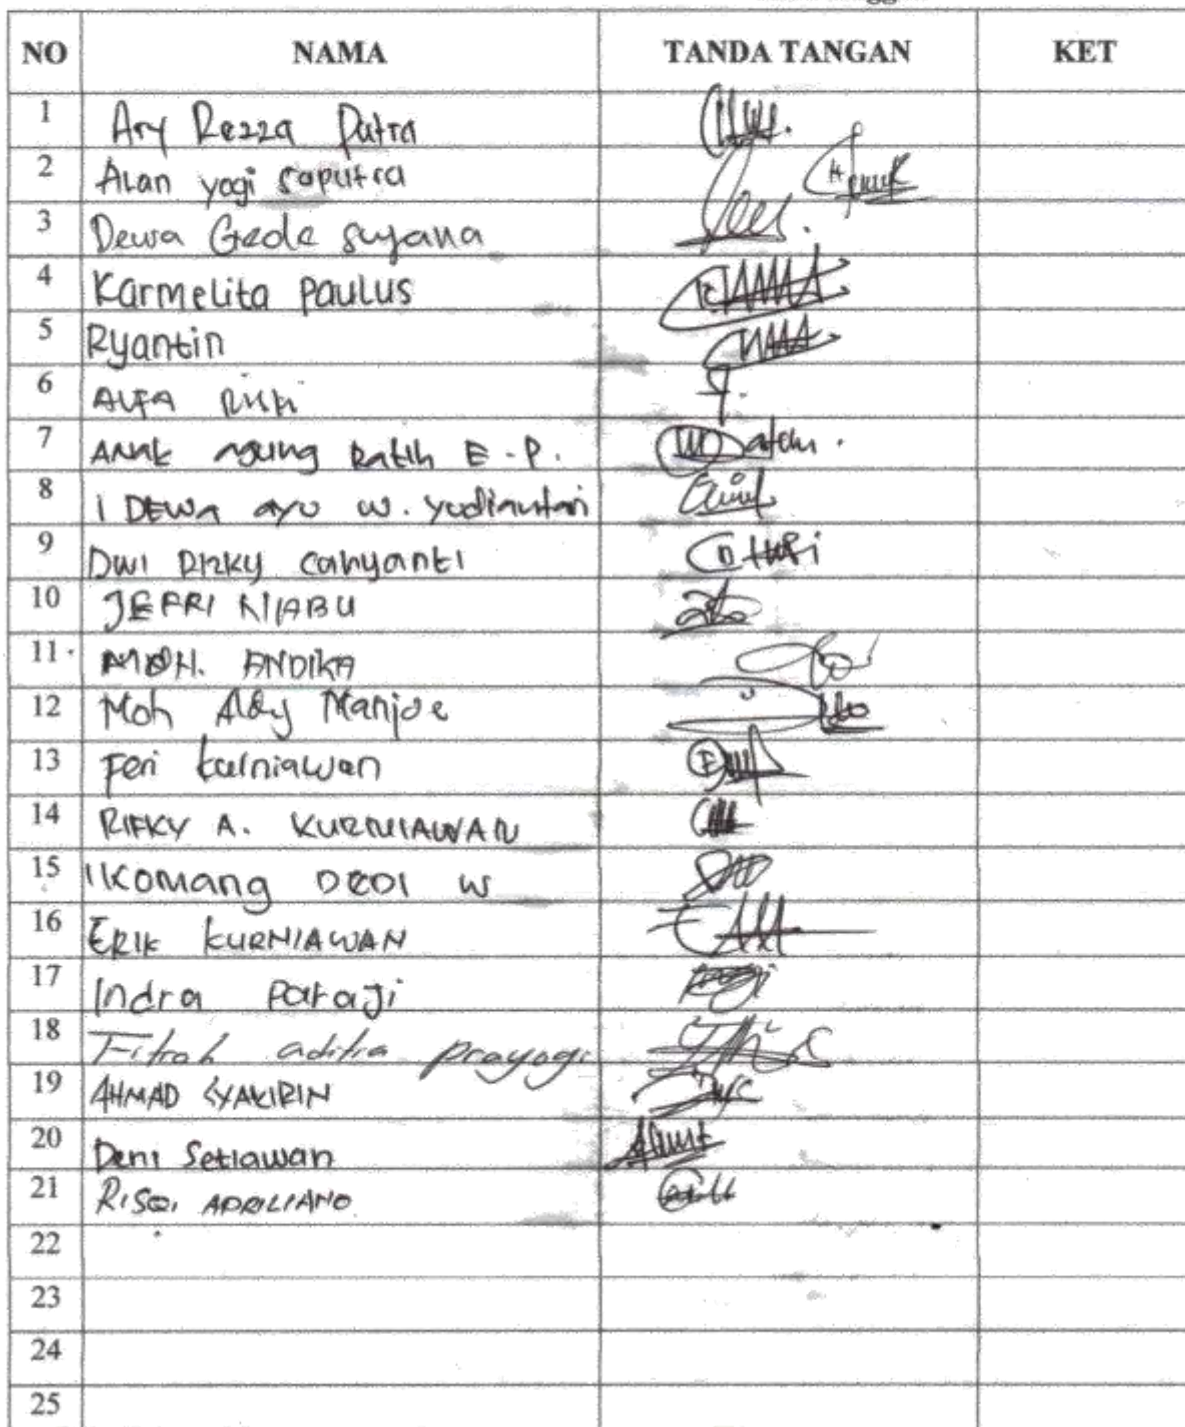 NO NAMA TANDA TANGAN KET
1 Ary Rezza Putra
2 Alan yogi saputra
3 Dewa Gede suyana
4 Karmelita Paulus
5 Ryantin
6 ALFA Riski
7 Anak agung Ratih E.P.
8 I DEWA ayu w. yudiantari
9 Dwi Rizky cahyanti
10 JEFRI NIABU
11 MOH. ANDIKA
12 Moh Aldy Manjoe
13 Feri kurniawan
14 RIFKY A. KURNIAWAN
15 I Komang DEDI W
16 ERIK KURNIAWAN
17 Indra Parasi
18 Fitrah aditia prayogi
19 AHMAD SYAKIRIN
20 Deni Setiawan
21 RISQI APRILIANO
22
23
24
25